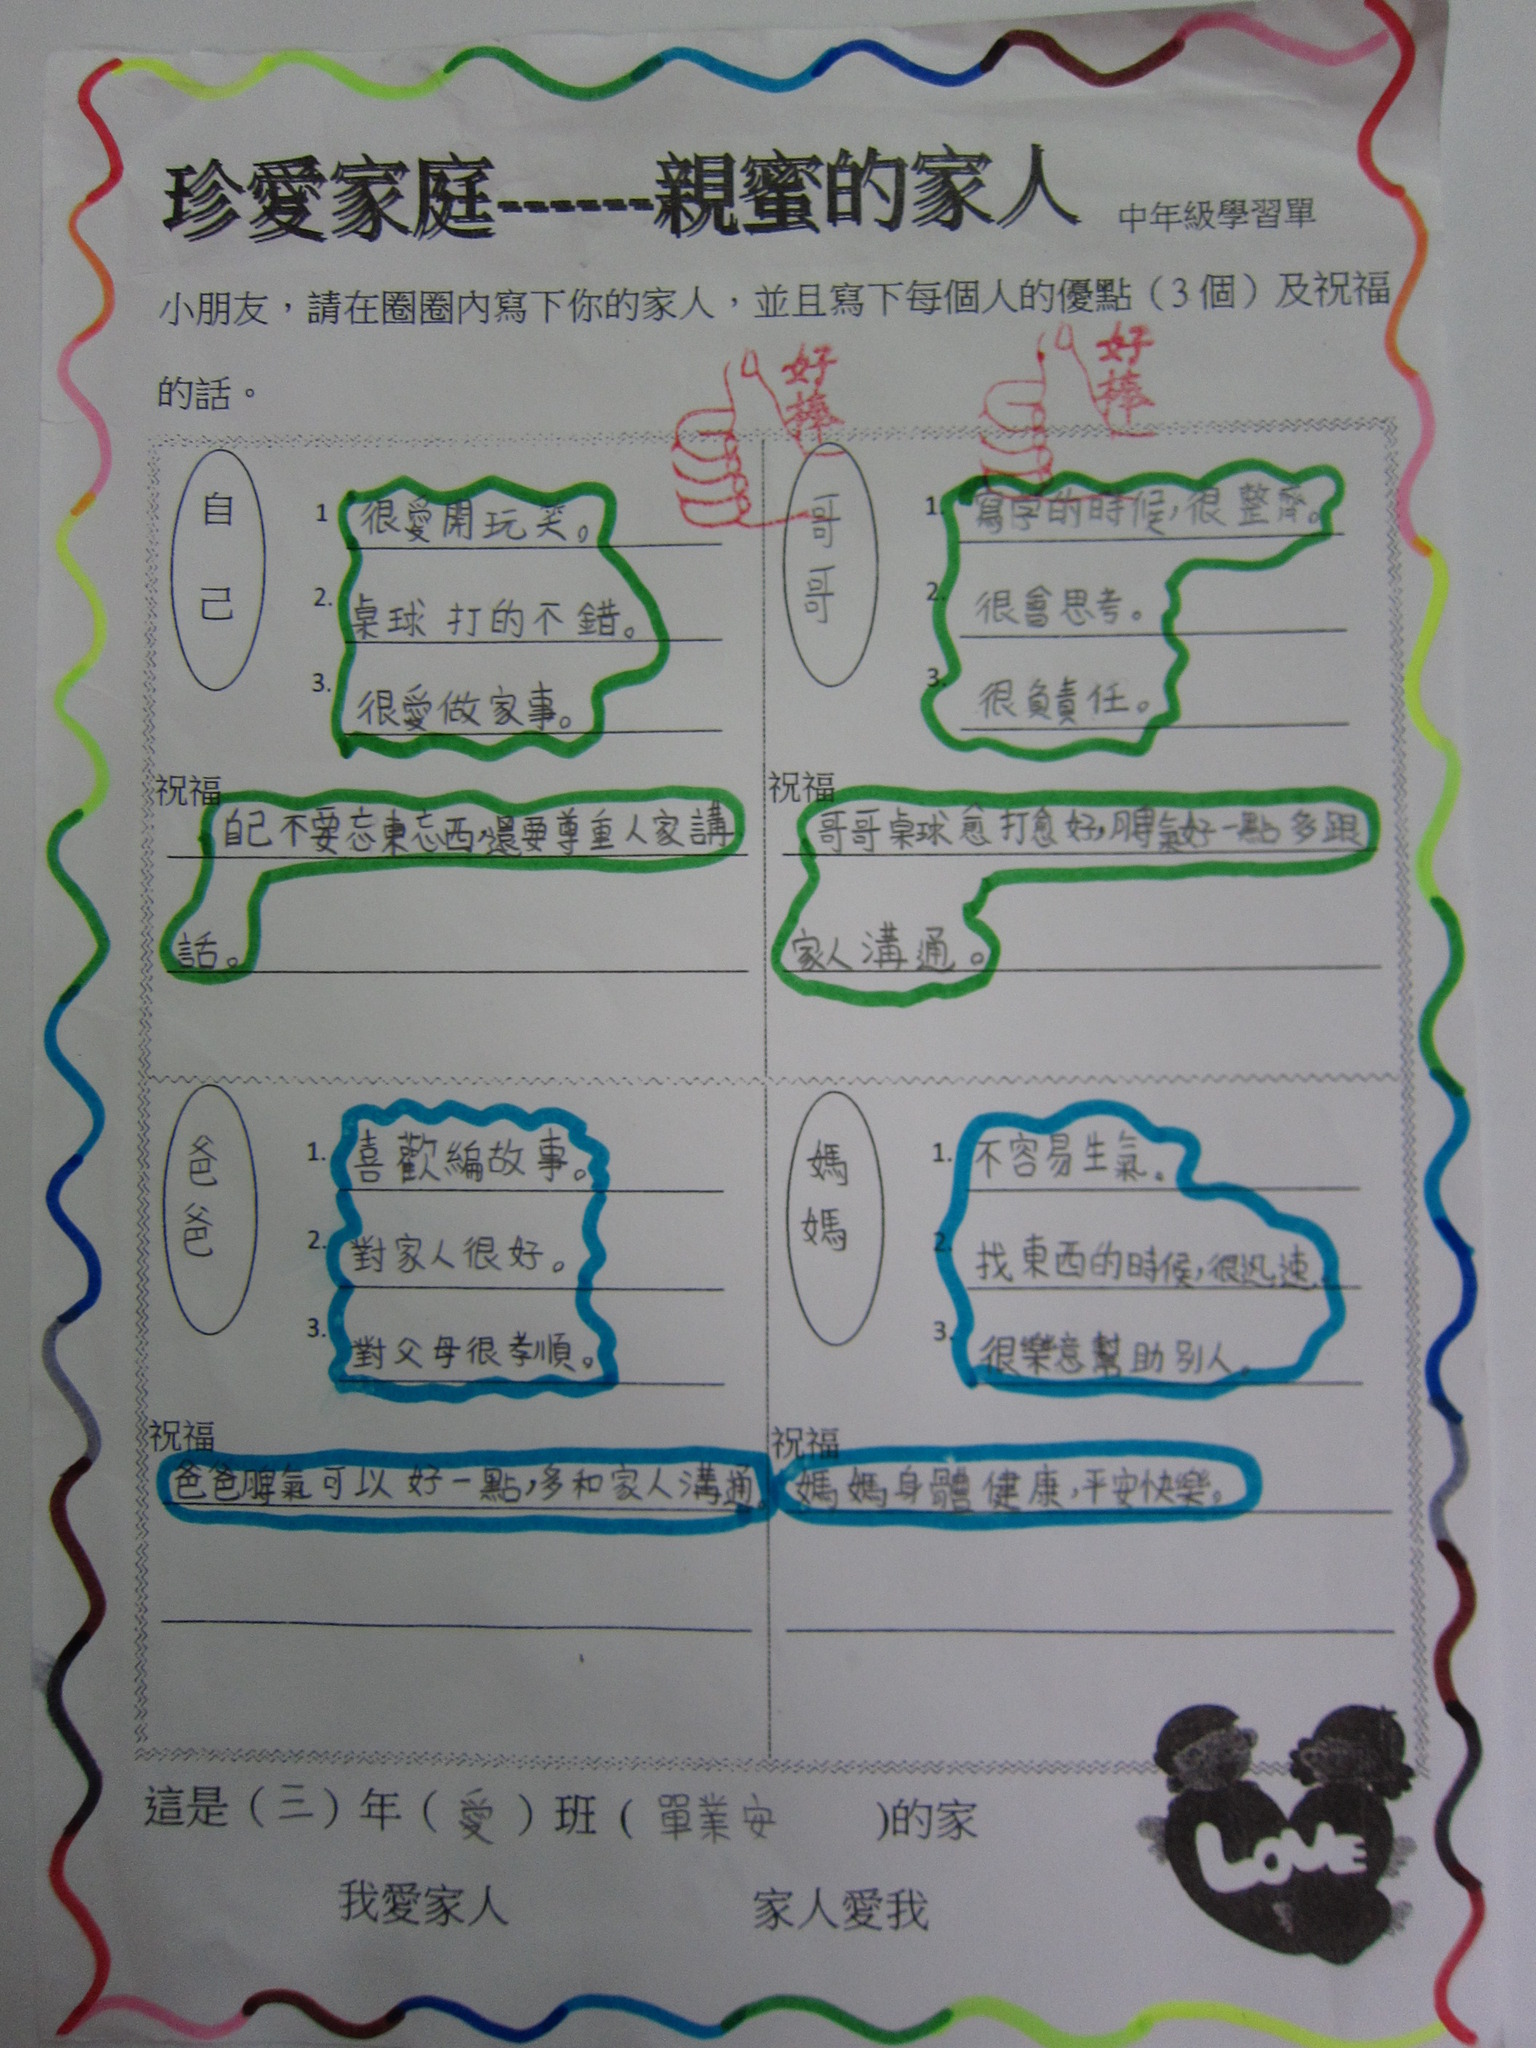 珍愛家庭------親蜜的家人 中年級學習單
小朋友，請在圈圈內寫下你的家人，並且寫下每個人的優點（3個）及祝福
的話。
好棒
好棒
自己
1 很愛開玩笑。
2. 桌球打的不錯。
3. 很愛做家事。
祝福
自己不要忘東忘西，還要尊重人家講
話。
哥哥
1. 寫字的時候，很整齊。
2. 很會思考。
3. 很負責任。
祝福
哥哥桌球愈打愈好，脾氣好一點多跟
家人溝通。
爸爸
1. 喜歡編故事。
2. 對家人很好。
3. 對父母很孝順。
祝福
爸爸脾氣可以好一點，多和家人溝通。
媽媽
1. 不容易生氣。
2. 找東西的時候，很迅速
3. 很樂意幫助別人。
祝福
媽媽身體健康，平安快樂。
這是（三）年（愛）班（單業安）的家
我愛家人 家人愛我
LOVE